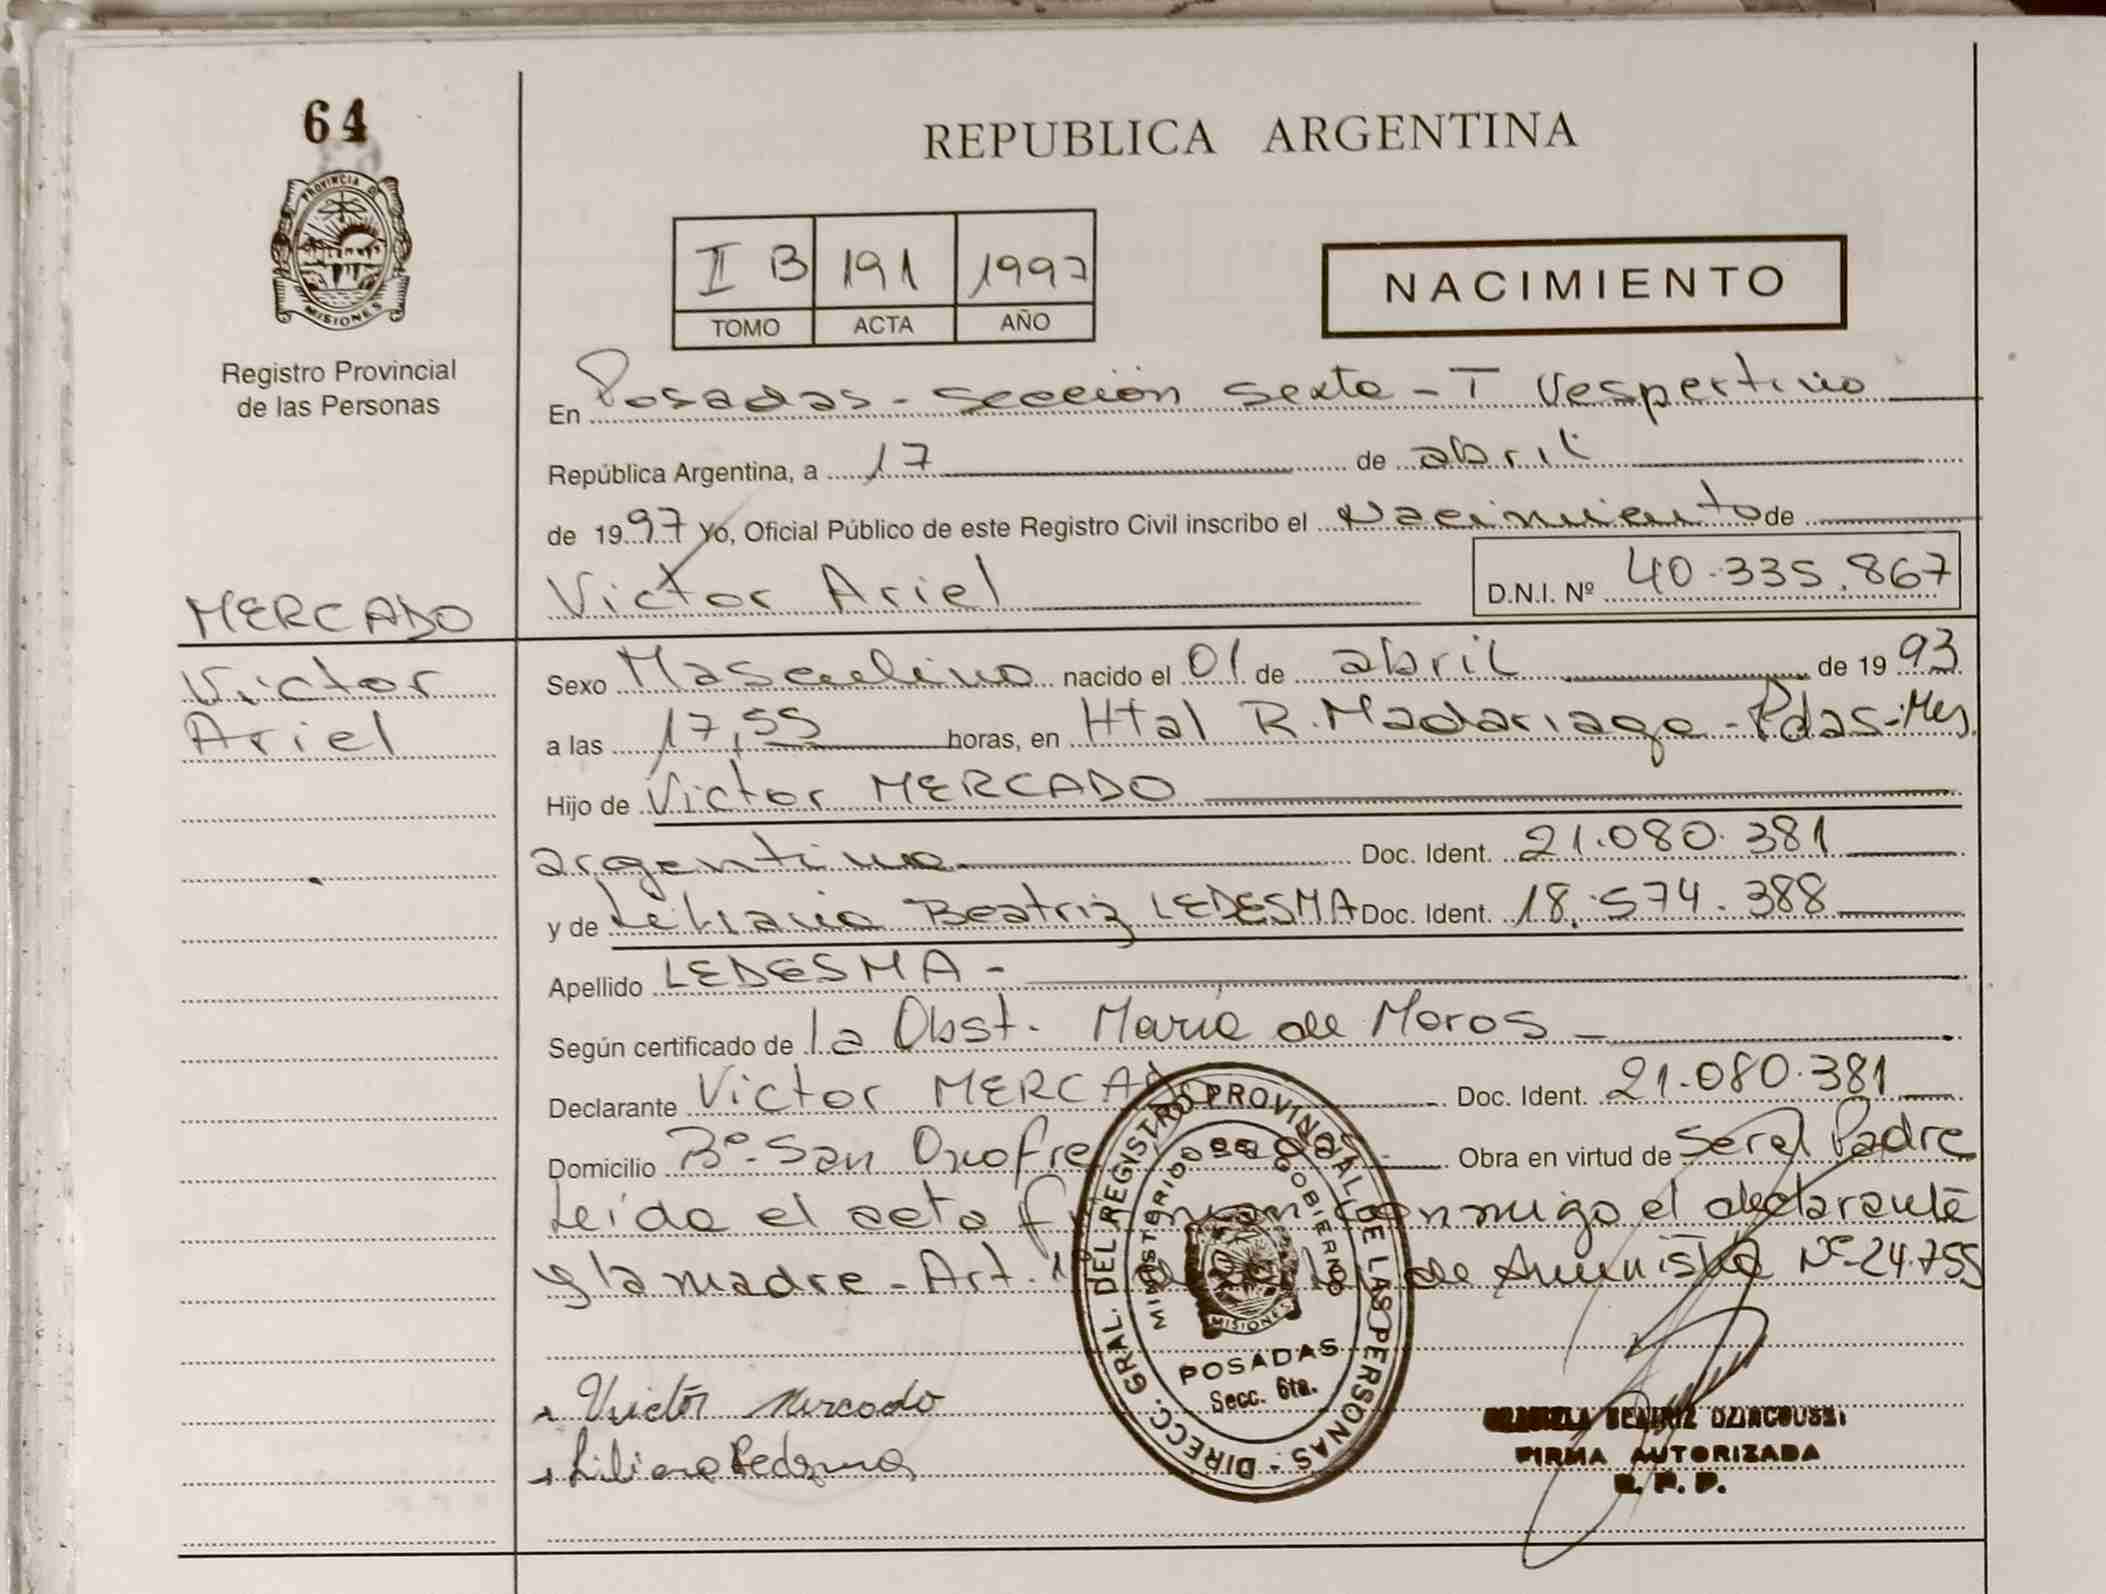 64
PROVINCIA D
MISIONES
Registro Provincial
de las Personas
MERCADO
Victor
Ariel
REPUBLICA ARGENTINA
II B 191 1997
TOMO ACTA AÑO
NACIMIENTO
En Posadas - sección sexta - T Vespertino
República Argentina, a 17 de abril
de 1997 Yo, Oficial Público de este Registro Civil inscribo el Nacimiento de
Victor Ariel D.N.I. Nº 40.335.867
Sexo Masculino nacido el 01 de abril de 1993
a las 17,55 horas, en Htal R. Madariaga - Pdas - Mns.
Hijo de Victor MERCADO
argentino Doc. Ident. 21.080.381
y de Liliana Beatriz LEDESMA Doc. Ident. 18.574.388
Apellido LEDESMA -
Según certificado de la Obst. Maria de Moros -
Declarante Victor MERCADO Doc. Ident. 21.080.381
Domicilio Bº San Onofre Obra en virtud de Ser el Padre
Leída el acta firman conmigo el declarante
y la madre - Art. 1º de Amnistia Nº 24.755
DIRECC. GRAL. DEL REGISTRO PROVINCIAL DE LAS PERSONAS -
MINISTERIO DE GOBIERNO
MISIONES
POSADAS
Secc. 6ta.
Victor Mercado
Liliana Ledesma
BEATRIZ
FIRMA AUTORIZADA
R. P. P.